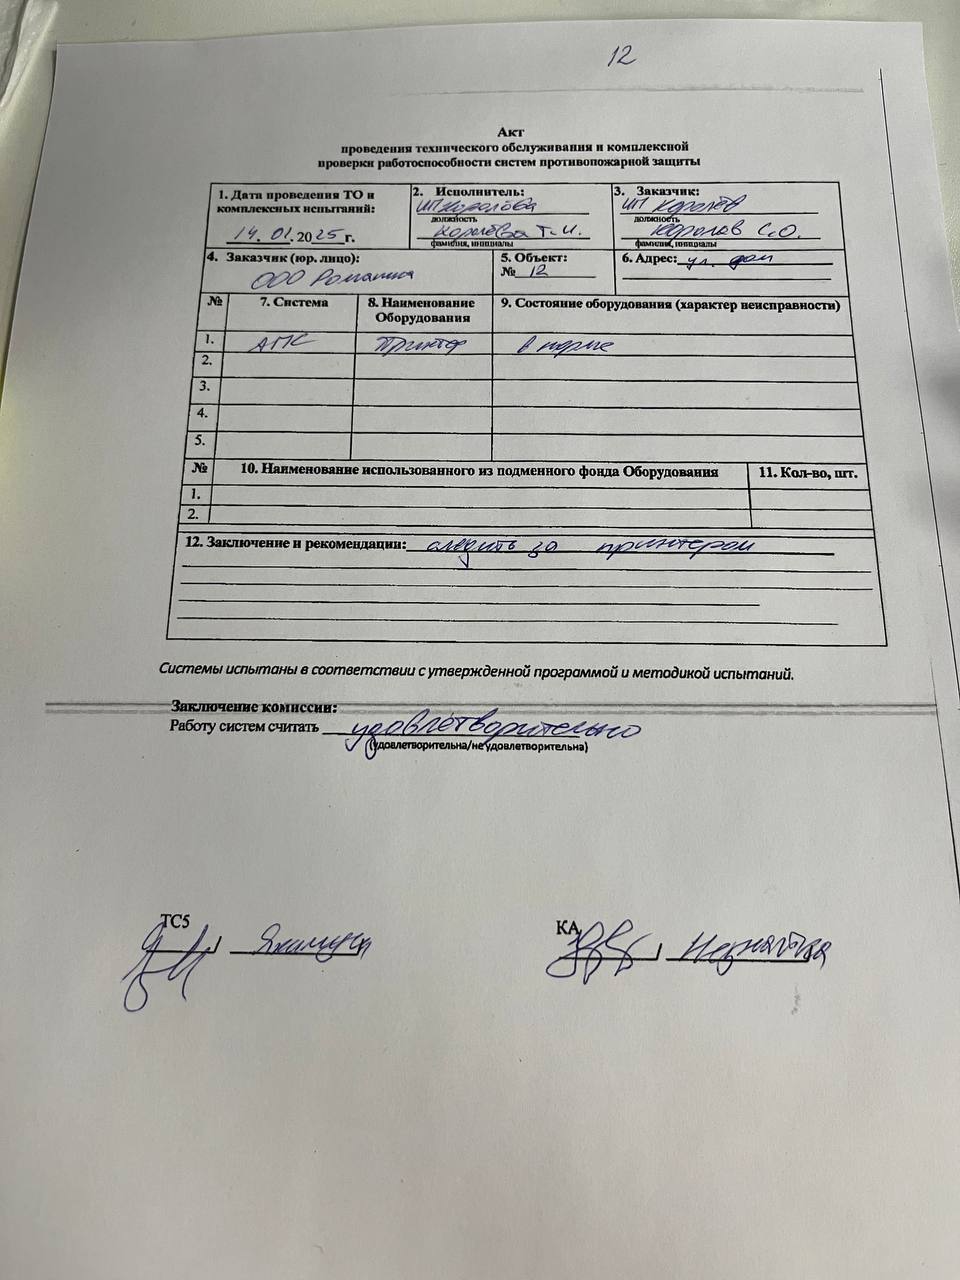 12
Акт
проведения технического обслуживания и комплексной
проверки работоспособности систем противопожарной защиты
1. Дата проведения ТО и
комплексных испытаний:
14.01.2025 г.
2. Исполнитель:
ИП Королова
должность
Королёва Т.И.
фамилия, инициалы
3. Заказчик:
ИП Королёв
должность
Королёв С.О.
фамилия, инициалы
4. Заказчик (юр. лицо):
ООО Ромашка
5. Объект:
№ 12
6. Адрес: ул. дом
№ 7. Система 8. Наименование Оборудования 9. Состояние оборудования (характер неисправности)
1. АПС Принтер в норме
2.
3.
4.
5.
№ 10. Наименование использованного из подменного фонда Оборудования 11. Кол-во, шт.
1.
2.
12. Заключение и рекомендации: следить за принтером
Системы испытаны в соответствии с утвержденной программой и методикой испытаний.
Заключение комиссии:
Работу систем считать удовлетворительно
(удовлетворительна/не удовлетворительна)
ТС5 КА
/ /